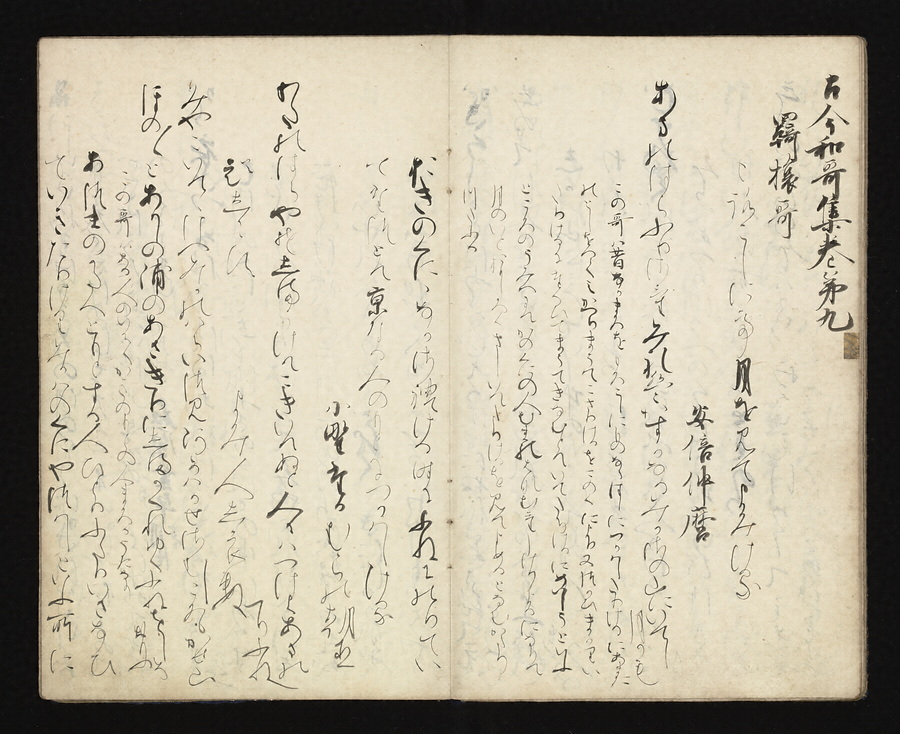 古今和哥集巻第九
羇旅哥
もろこしにて月を見てよみける
安倍仲麿
あまのはらふりさけみれはかすかなるみかさの山にいてし
月かも
この哥は昔なかまろをもろこしにものならはしにつかはしたりけるにあまた
のとしをへてえかへりまうてこさりけるをこのくにより又つかひまかりいたり
けるにたくひてまうてきなむとていてたちけるにめいしうといふ
ところのうみへにてかのくにの人むまのはなむけしけりよるになりて
月のいとおもしろくさしいてたりけるを見てよめるとなむかたり
つたふる
おきのくにゝなかされける時にふねにのりてい
てたつとて京なる人のもとにつかはしける
小野たかむらの朝臣
わたのはらやそしまかけてこきいてぬと人にはつけよあまの
つりふね
題しらす よみ人しらす
みやこいてゝけふみかのはらいつみかはかはかせさむしころもかせ山
ほの〳〵とあかしの浦のあさきりにしまかくれゆくふねをしそ
おもふ
この哥ある人のいはくかきのもとの人まろかうた也
あつまの方へともとする人ひとりふたりいさなひ
ていきけりみかはのくにやつはしといふ所に